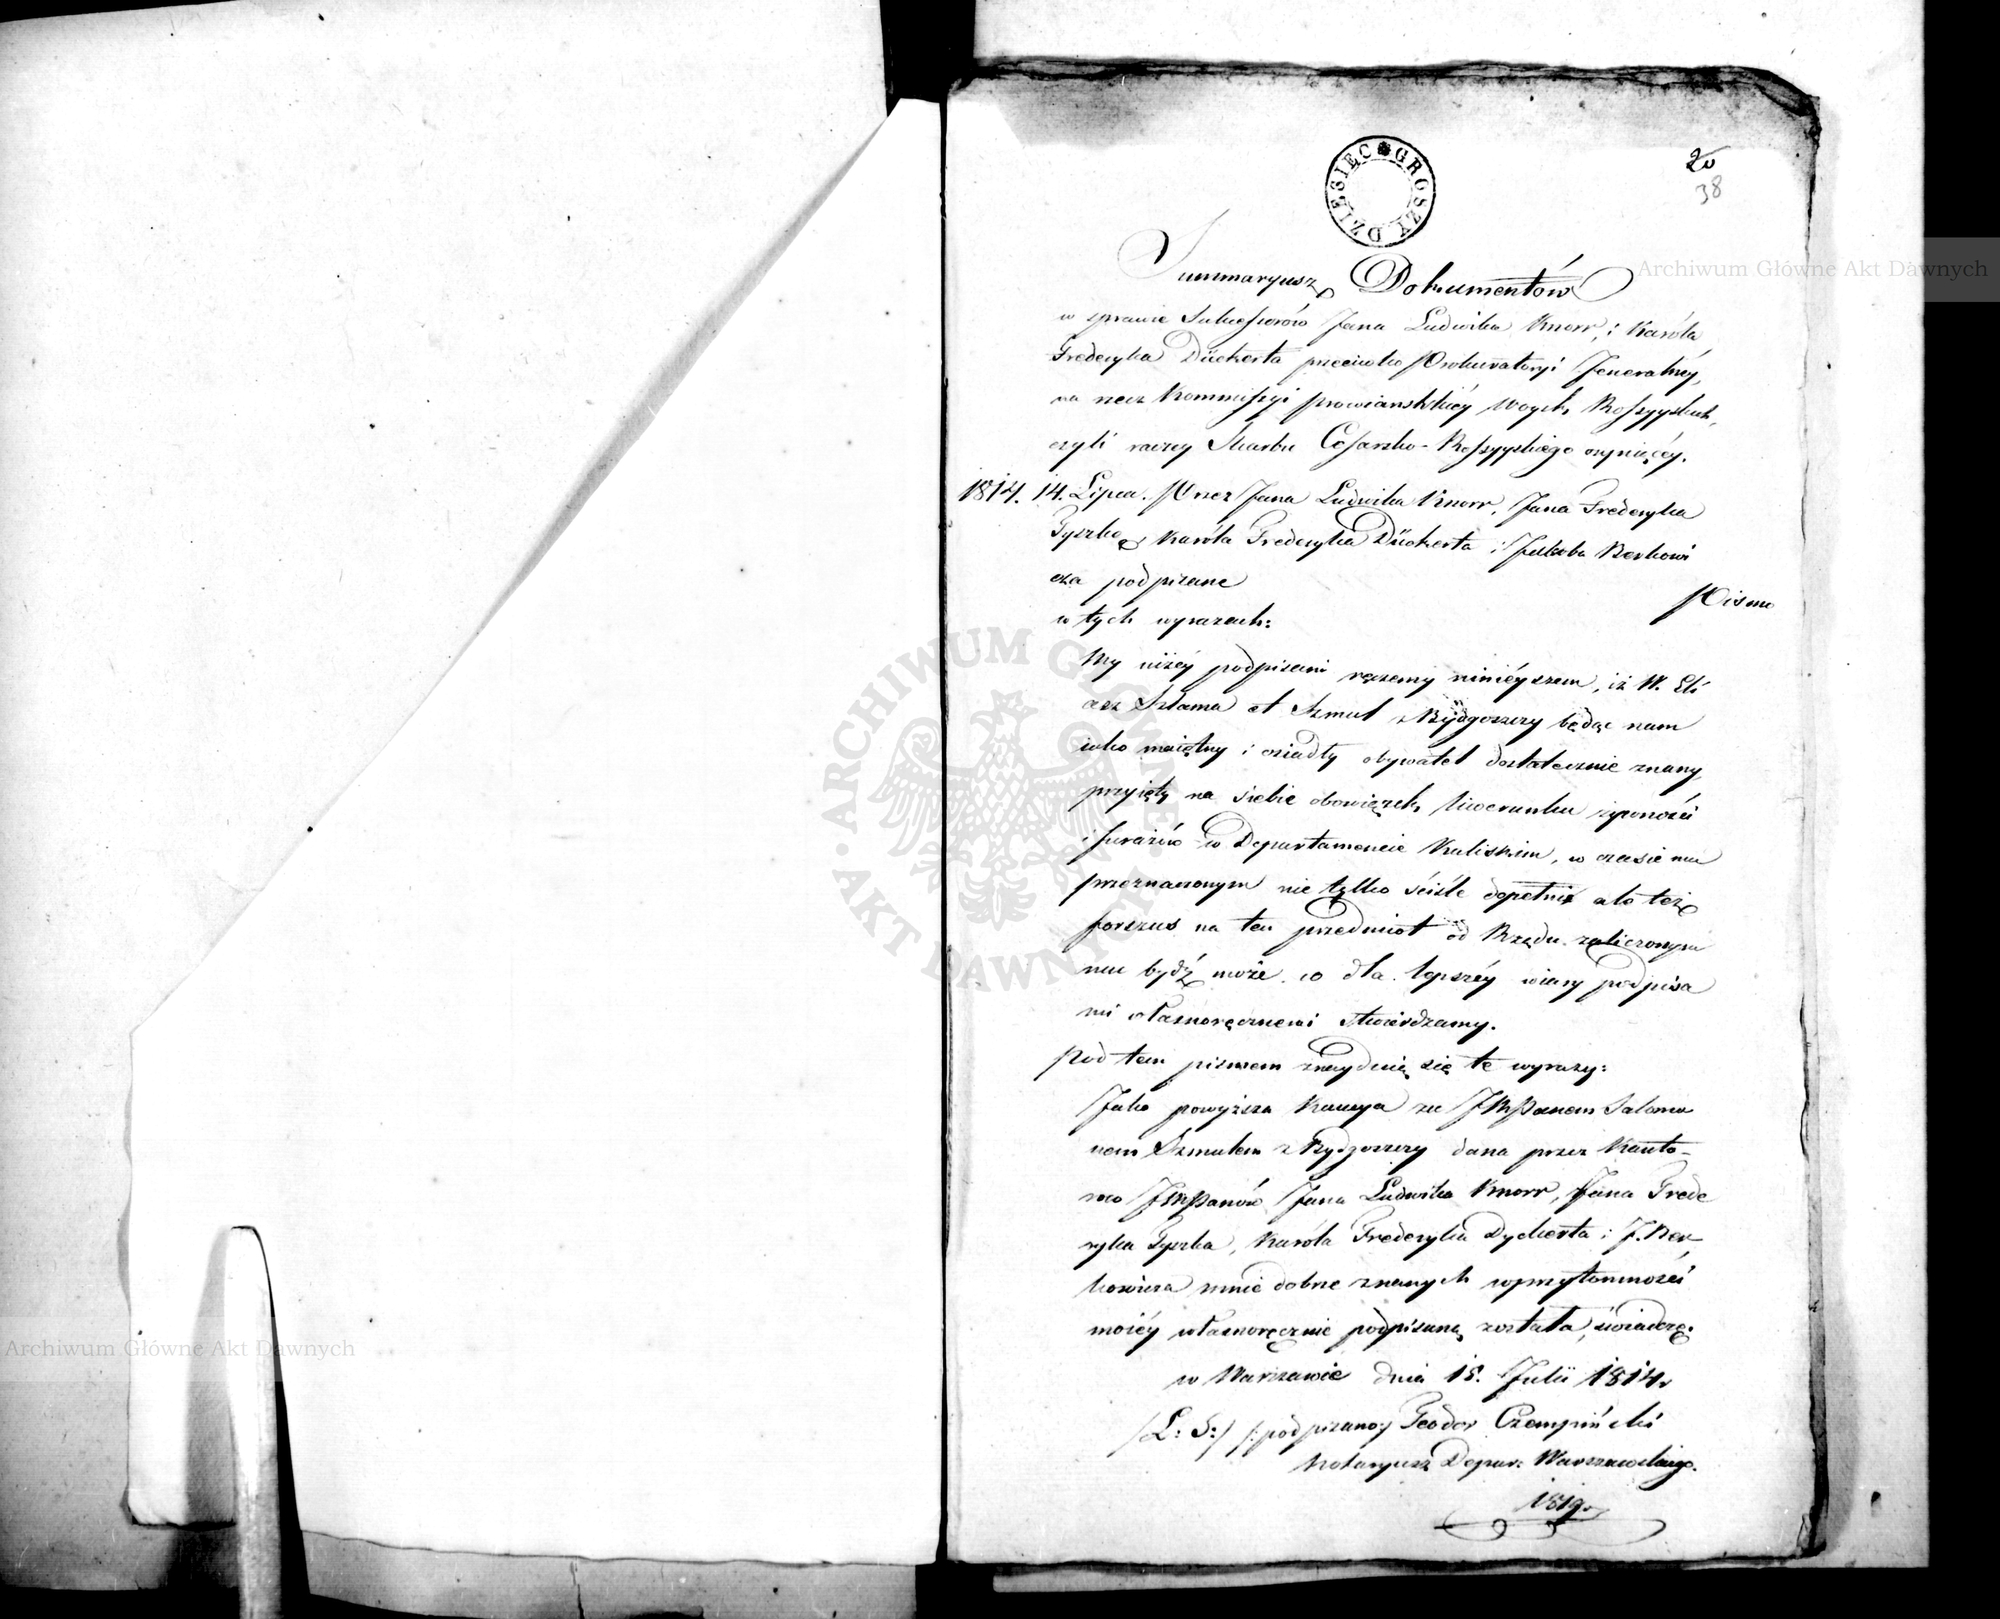 DZIESIĘC GROSZY
20
38
Summaryusz Dokumentów
w sprawie Sukcessorów Jana Ludwika Knorr, i Karóla
Frederyka Dückerta przeciwko Prokuratoryi Jeneralnéy,
na rzecz Kommissyi prowianskiéy Woysk Rossyyskich,
czyli raczey Skarbu Cesarsko-Rossyyskiego czyniącéy.
1814. 14. Lipca. Przez Jana Ludwika Knorr, Jana Frederyka
Tyszkę, Karóla Frederyka Dückerta i Jakóba Berkowi
cza podpisane
Pismo
w tych wyrazach:
My niżéy podpisani ręczemy ninieyszem, iż W. Eli
azz Szlama et Szmul z Bydgoszczy będąc nam
iako maiętny i osiadły obywatel dostatecznie znany,
przyięty na siebie obowiązek liwerunku żywności
i furażów w Departamencie Kaliskim, w czasie mu
przeznaczonym nie tylko ściśle dopełni ale też
forszus na ten przedmiot od Rządu zaliczonym
mu bydź może. co dla lepszéy wiary podpisa
mi własnoręcznemi stwierdzamy.
Pod tem pismem znayduią się te wyrazy:
Jako powyższa Kaucya za JWPanem Salamo
nem Szmulem z Bydgoszczy dana przez Kanto-
rów JWPanów Jana Ludwika Knorr, Jana Frede
ryka Tyszka, Karóla Frederyka Dyckerta i J. Ber
kowicza mnie dobrze znanych w przytomności
moiéy własnoręcznie podpisaną została, świadczę.
w Warszawie dnia 15. Julii 1814.
/L: S:/ /:podpisano:/ Teodor Czempiński
Notaryusz Depar: Warszawskiego.
1819.
Archiwum Główne Akt Dawnych
ARCHIWUM GŁÓWNE · AKT DAWNYCH ·
Archiwum Główne Akt Dawnych